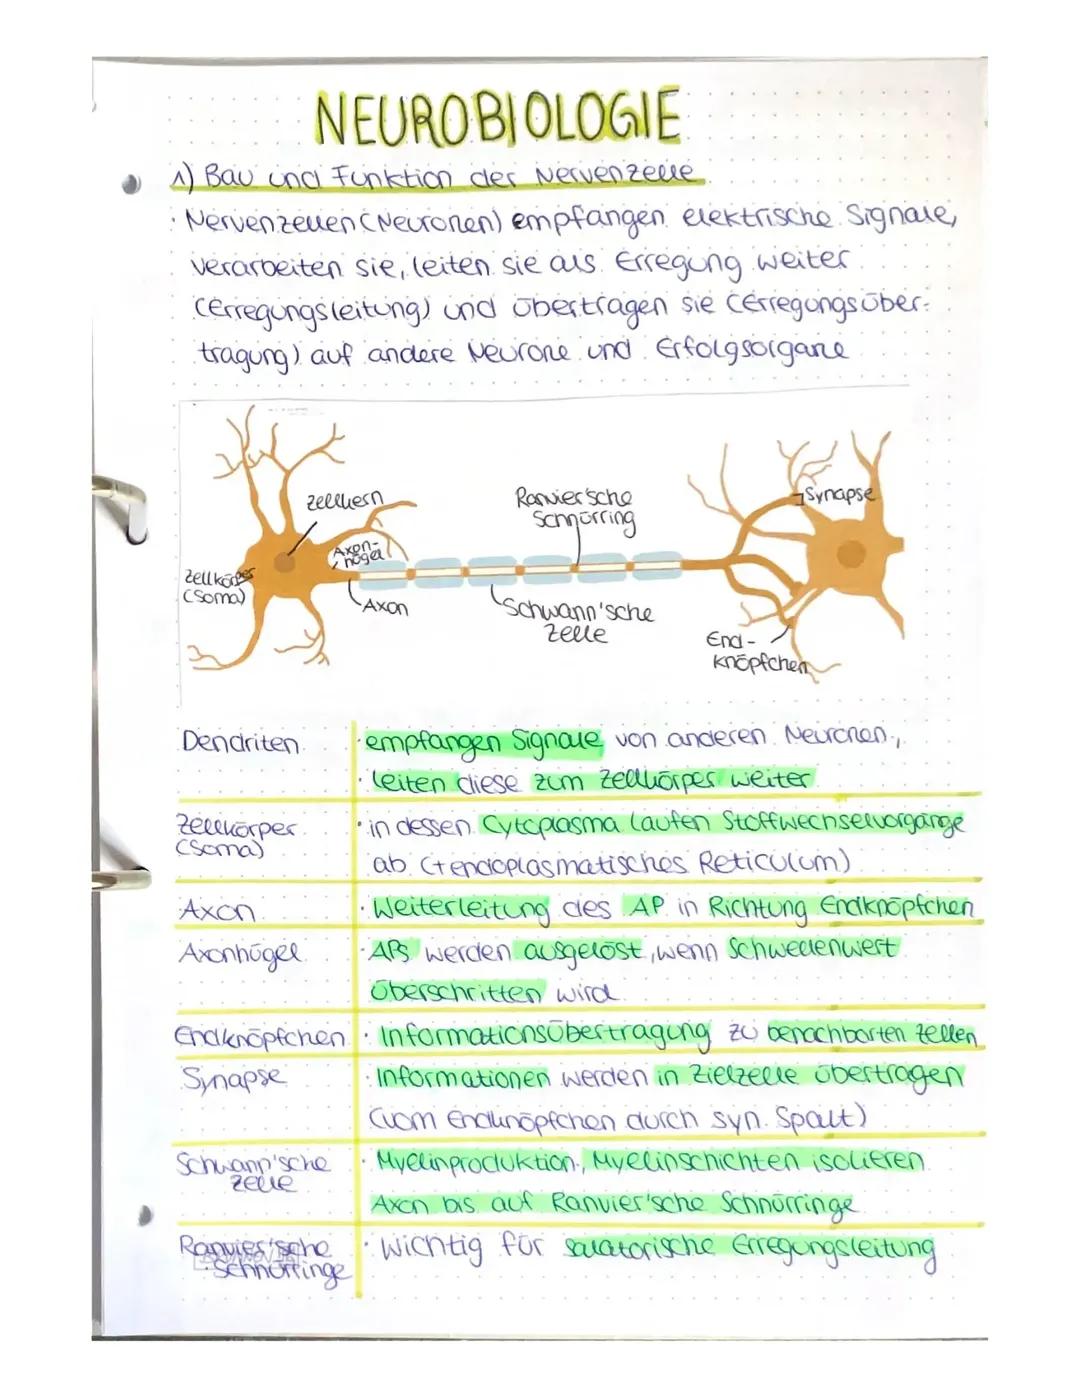 NEUROBIOLOGIE
1) Bau und Funktion der Nervenzelle
· Nervenzellen (Neuronen) empfangen elektrische Signale,
verarbeiten sie, leiten sie als Erregung weiter
(Erregungsleitung) und übertragen sie (Erregungsüber-
tragung) auf andere Neurone und Erfolgsorgane
Zellkern
Ranvier'sche
Schnürring
Synapse
Axon-
hügel
Zellkörper
(Soma)
Axon
Schwann'sche
Zelle
End-
knöpfchen
Dendriten · empfangen Signale von anderen Neuronen,
· leiten diese zum Zellkörper weiter
Zellkörper · in dessen Cytoplasma laufen Stoffwechselvorgänge
(Soma) ab (+ endoplasmatisches Reticulum)
Axon · Weiterleitung des AP in Richtung Endknöpfchen
Axonhügel · APs werden ausgelöst, wenn Schwellenwert
überschritten wird
Endknöpfchen · Informationsübertragung zu benachbarten Zellen
Synapse · Informationen werden in Zielzelle übertragen
(vom Endknöpfchen durch syn. Spalt)
Schwann'sche · Myelinproduktion, Myelinschichten isolieren
Zelle Axon bis auf Ranvier'sche Schnürringe
Ranvier'sche · wichtig für saltatorische Erregungsleitung
Schnürringe